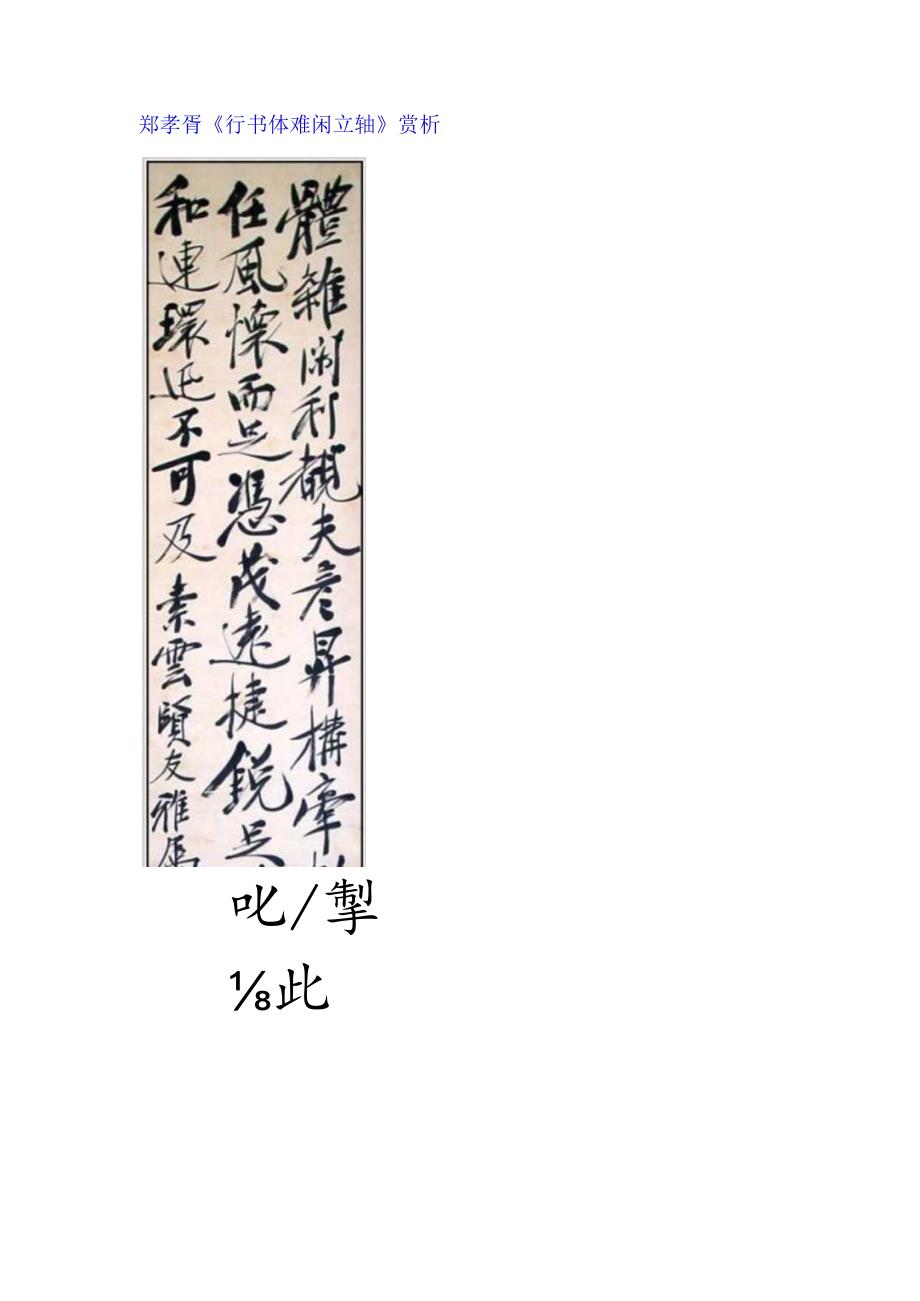 郑孝胥《行书体难闲立轴》赏析
體雖閑利覩夫彦昇構牽
任風懷而足憑茂遠捷鋭足
和連環近不可及
素雲賢友雅属
叱/掣
⅛此